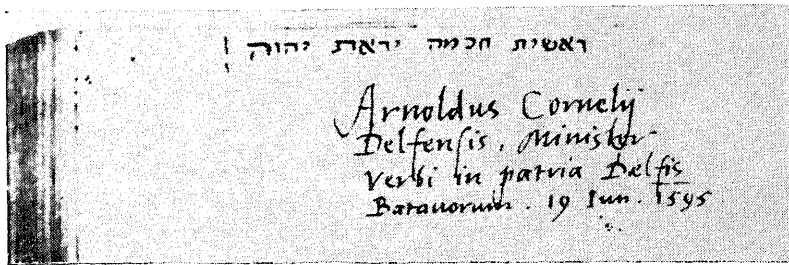 ראשית חכמה יראת יהוה
Arnoldus Cornelij
Delfensis, Minister
Verbi in patria Delfis
Batavorum. 19 Jun. 1595